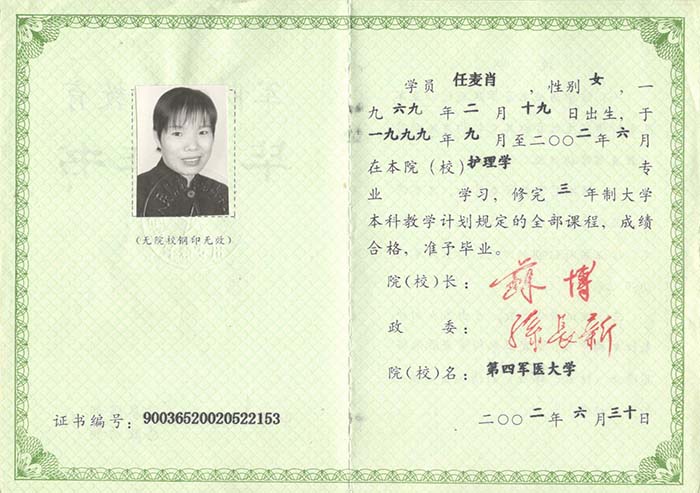 (无院校钢印无效)
证书编号：90036520020522153
学员 任麦肖 ，性别 女 ，一
九 六九 年 二 月 十九 日出生，于
一九九九 年 九 月至二〇〇二年 六 月
在本院（校）护理学 专
业 学习，修完 三 年制大学
本科教学计划规定的全部课程，成绩
合格，准予毕业。
院(校)长： 苏博
政 委： 孙长新
院(校)名：第四军医大学
二〇〇二年 六 月三十日